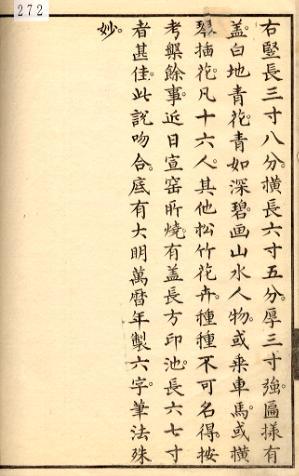 272
右竪長三寸八分。横長六寸五分。厚三寸強。匾様有
盖白地青花。青如深碧画山水人物。或乗車馬。或横
琴插花。凡十六人。其他松竹花卉。種種不可名得。按
考槃餘事。近日宣窑所燒。有盖長方印池。長六七寸
者甚佳。此説吻合。底有大明萬暦年製六字筆法殊
妙。